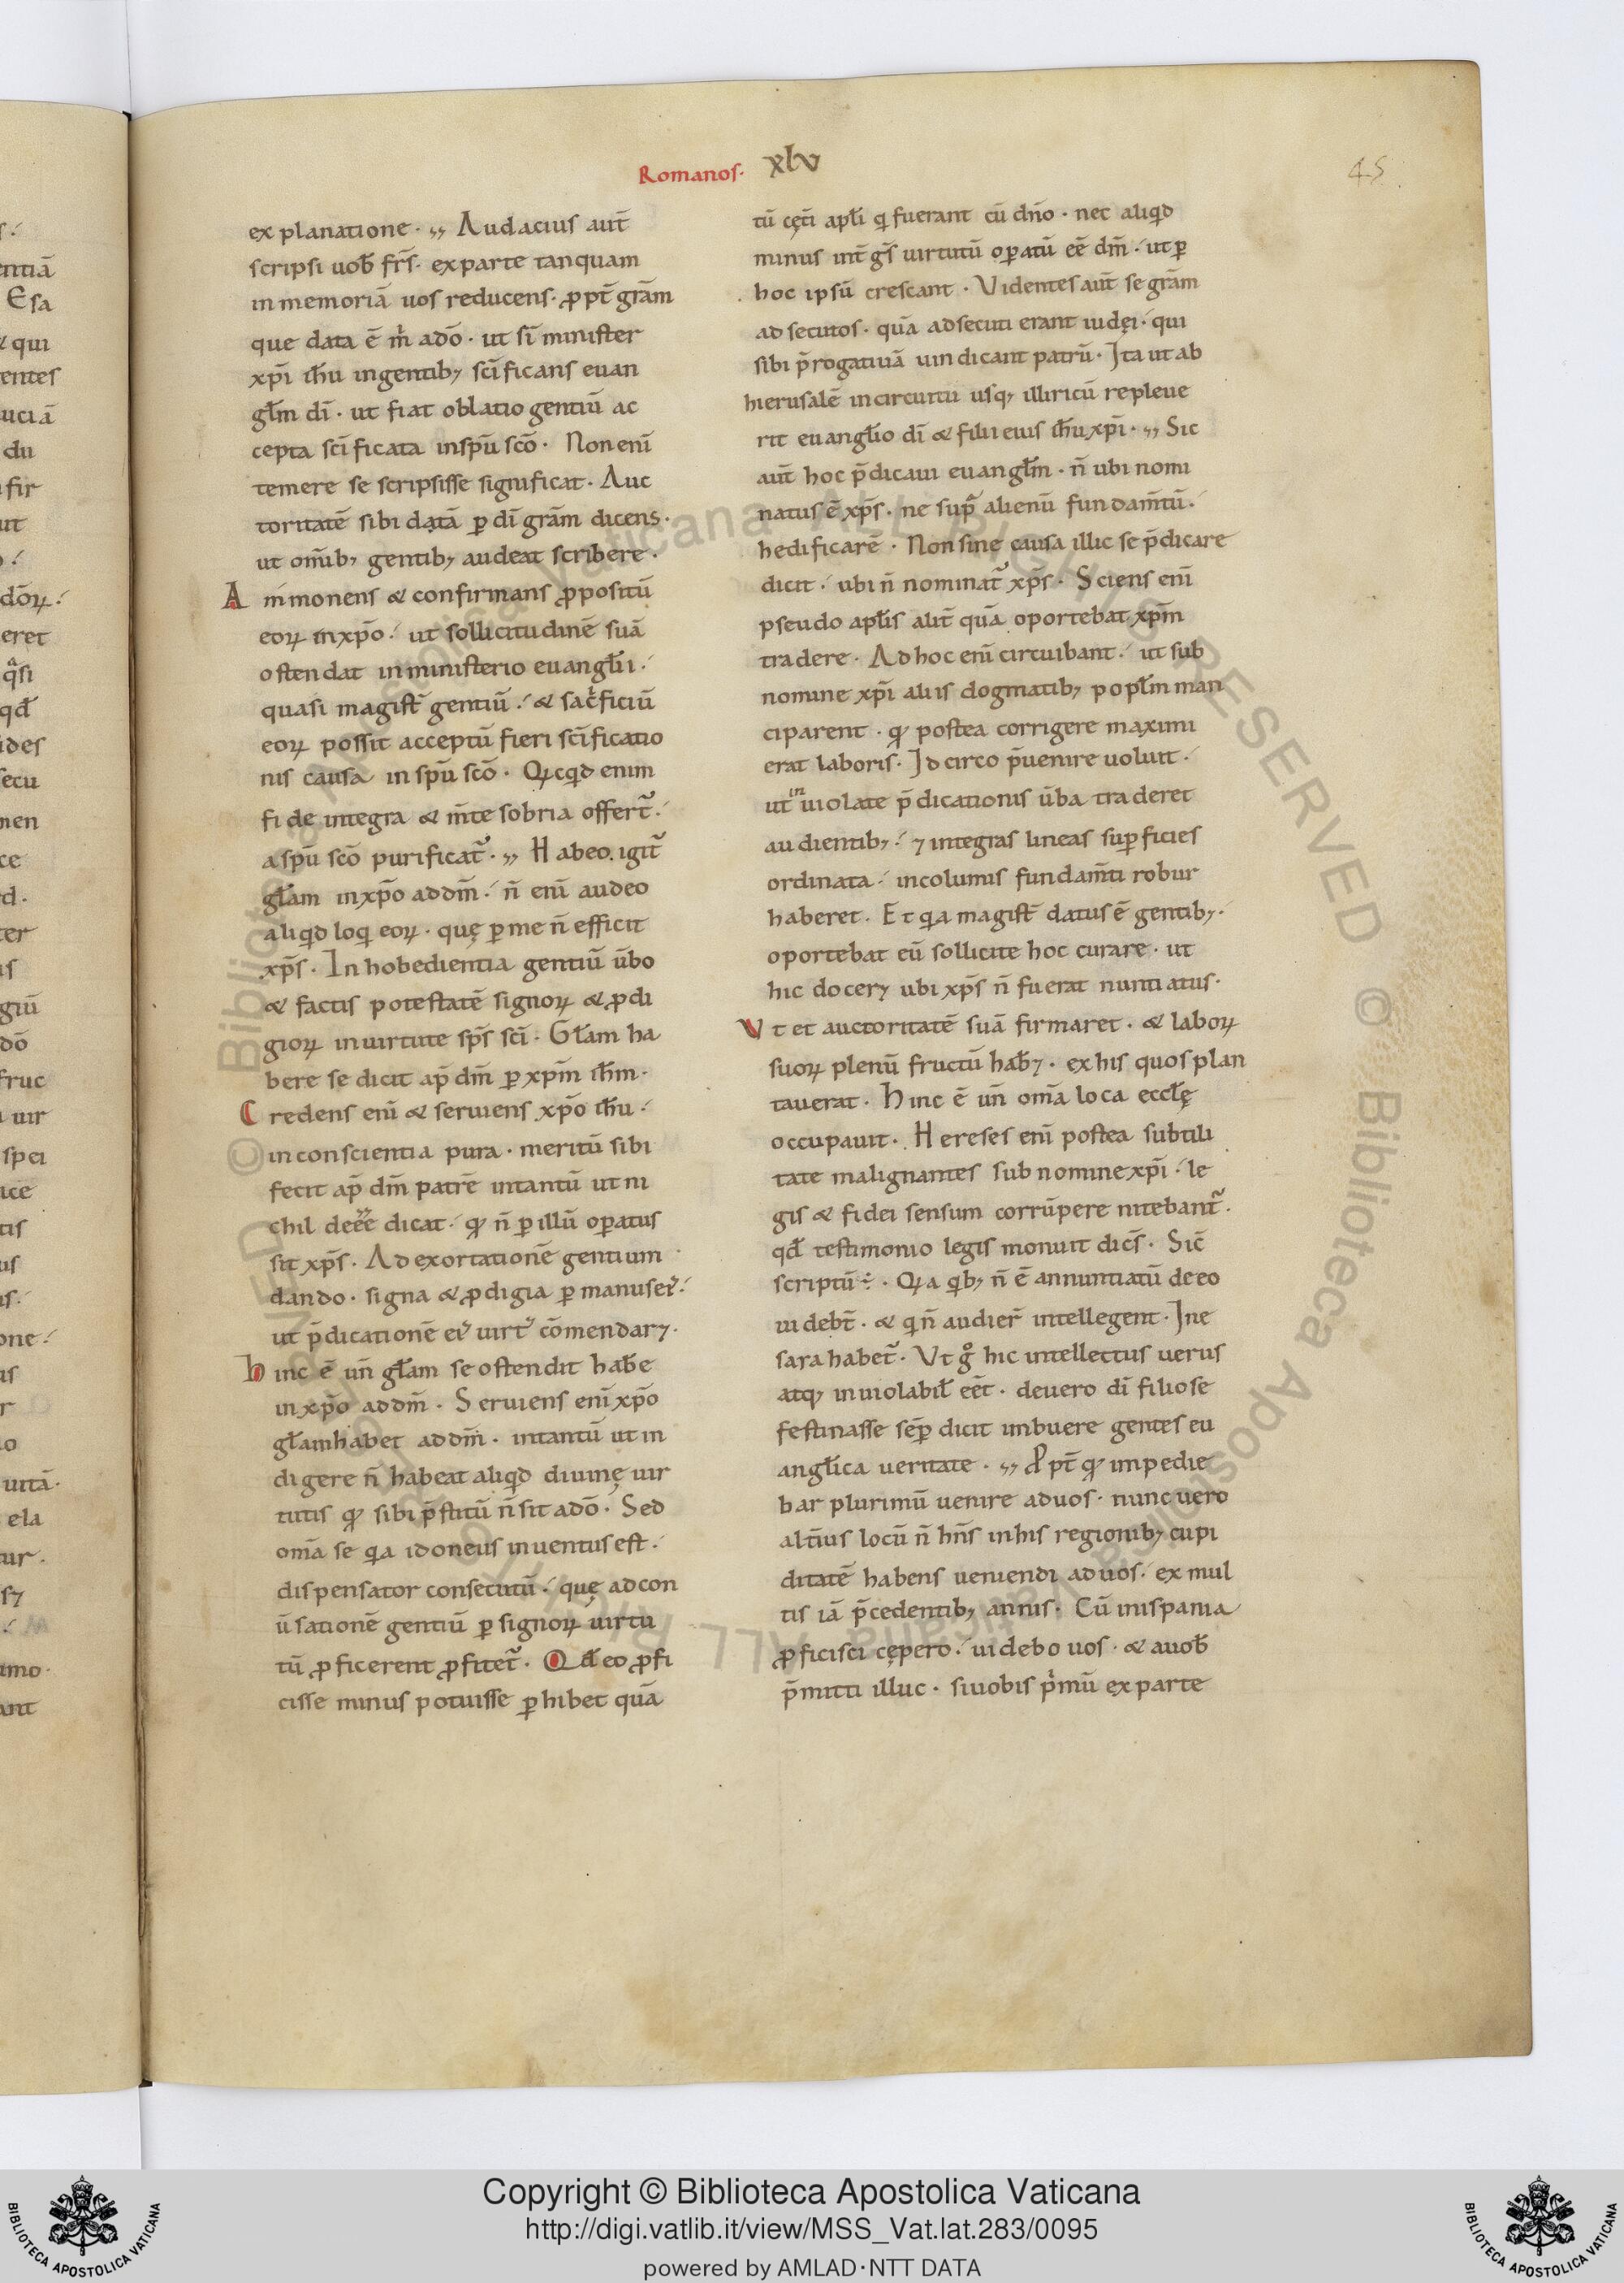 Romanos· xlv
45
explanatione · Audacius aut̄
scripsi uob̄ fr̄s· ex parte tanquam
in memoriā uos reducens· ꝓpt̄ gr̄am
que data ē m̓ a dō · ut sī minister
xp̄i ih̄u in gentib; sc̄ificans euan
gl̄m dī · ut fiat oblatio gentiū ac
cepta sc̄ificata in sp̄u sc̄o · Non enī
temere se scripsisse significat · Auc
toritatē sibi datā ꝑ dī gr̄am dicens·
ut om̄ib; gentib; audeat scribere ·
Ammonens & confirmans ꝓpositū
eoꝝ in xp̄o ut sollicitudinē suā
ostendat in ministerio euangl̄ii
quasi magist̄ gentiū & sac̓ficiū
eoꝝ possit acceptū fieri sc̄ificatio
nis causa in sp̄u sc̄o · Qꝫcqd enim
fide integra & m̄te sobria offert᷑
a sp̄u sc̄o purificat᷑ · Habeo igit᷑
gl̄am in xp̄o ad dm̄ n̄ enī audeo
aliqd loq eoꝝ · quę ꝑ me n̄ efficit
xp̄s · In hobedientia gentiū ūbo
& factis potestatē signoꝝ & ꝓdi
gioꝝ in uirtute sp̄s sc̄i · Gl̄am ha
bere se dicit ap̄ dm̄ ꝑ xp̄m ih̄m·
Credens enī & seruiens xp̄o ih̄u
in conscientia pura · meritū sibi
fecit ap̄ dm̄ patrē intantū ut ni
chil deēē dicat ꝙ n̄ ꝑ illū oꝑatus
sit xp̄s · Ad exortationē gentium
dando · signa & ꝓdigia ꝑ manus ei᷑
ut p̄dicationē ei᷑ uirt᷑ cōmendarꝫ·
hinc ē un̄ gl̄am se ostendit hab̄e
in xp̄o ad dm̄ · Seruiens enī xp̄o
gl̄am habet ad dm̄ · intantū ut in
digere n̄ habeat aliqd diuinę uir
tutis ꝙ sibi p̄stitū n̄ sit a dō · Sed
om̄a se qa idoneus inuentus est
dispensator consecutū quę ad con
ūsationē gentiū ꝑ signoꝝ uirtu
tū ꝓficerent ꝓfitet᷑ · Qd̄ eo ꝓfi
cisse minus potuisse ꝑhibet quā
tū cęt̄i apl̄i q fuerant cū dn̄o · nec aliqd
minus int̄ gr̄s uirtutū oꝑatū eē dm̄ ut ꝑ
hoc ipsū crescant · Videntes aut̄ se gr̄am
adsecutos · quā adsecuti erant iudęi qui
sibi p̄rogatiuā uindicant patrū · Ita ut ab
hierusalē in circuitu usq; illiricū repleue
rit euangl̄io dī & filii eius ih̄u xp̄i · Sic
aut̄ hoc p̄dicaui euangl̄m · n̄ ubi nomi
natus ē xp̄s · ne suꝑ alienū fundam̄tū
hedificarē · Non sine causa illic se p̄dicare
dicit ubi n̄ nominat᷑ xp̄s · Sciens enī
pseudo apl̄is alit̄ quā oportebat xp̄m
tradere · Ad hoc enī circuibant ut sub
nomine xp̄i aliis dogmatib; popl̄m man
ciparent · ꝙ postea corrigere maximi
erat laboris · Idcirco p̄uenire uoluit
ut inuiolate p̄dicationis ūba traderet
audientib; ⁊ integras lineas suꝑficies
ordinata incolumis fundam̄ti robur
haberet · Et qa magist̄ datus ē gentib;
oportebat eū sollicite hoc curare · ut
hic docerꝫ ubi xp̄s n̄ fuerat nuntiatus·
Vt et auctoritatē suā firmaret · & laboꝝ
suoꝝ plenū fructū hab̄ꝫ · ex his quos plan
tauerat · Hinc ē un̄ om̄a loca eccl̄ę
occupauit · Hereses enī postea subtili
tate malignantes sub nomine xp̄i le
gis & fidei sensum corrūpere nitebant᷑ ·
qd̄ testimonio legis monuit dic̄s · Sic̄
scriptū ÷ · Qꝫa qb; n̄ ē annuntiatū de eo
uidebt̄ · & q n̄ audier̄ intellegent · In e
sara habet᷑ · Vt gͦ hic intellectus uerus
atq; inuiolabil̄ eēt · de uero dī filio se
festinasse seꝑ dicit imbuere gentes eu
angl̄ica ueritate · ꝓpt̄ ꝙ impedie
bar plurimū uenire ad uos · nunc uero
alt̄ius locū n̄ hn̄s in his regionib; cupi
ditatē habens ueniendi ad uos ex mul
tis iā p̄cedentib; annis · Cū in ispania
ꝓficisci cępero uidebo uos · & a uob̄
p̄mitti illuc · si uobis p̓mū ex parte
Copyright © Biblioteca Apostolica Vaticana
http://digi.vatlib.it/view/MSS_Vat.lat.283/0095
powered by AMLAD·NTT DATA